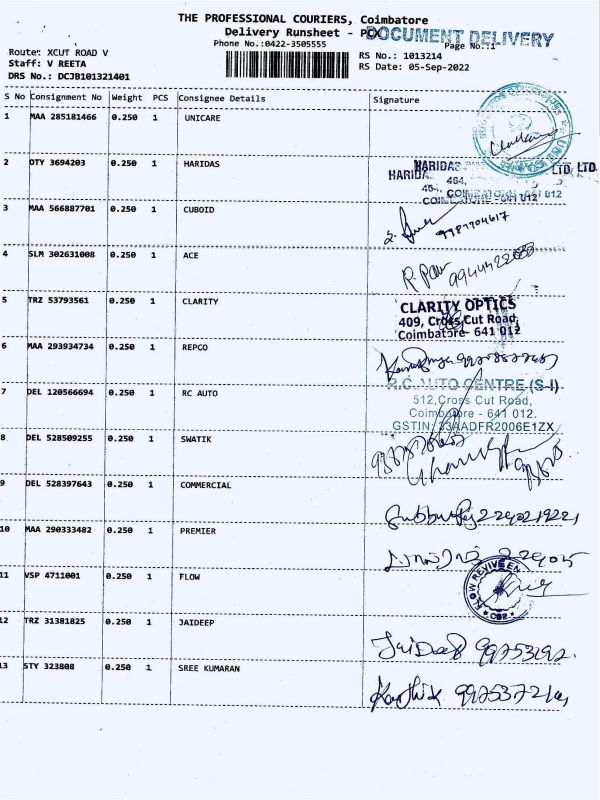 THE PROFESSIONAL COURIERS, Coimbatore
Delivery Runsheet - PCX
DOCUMENT DELIVERY
Phone No.:0422-3505555
Page No.:1
Route: XCUT ROAD V
RS No.: 1013214
Staff: V REETA
RS Date: 05-Sep-2022
DRS No.: DCJB101321401
S No Consignment No Weight PCS Consignee Details Signature
1 MAA 285181466 0.250 1 UNICARE
2 OTY 3694203 0.250 1 HARIDAS
HARIDAS LTD. LTD.
464,
COIMBATORE - 641 012
3 MAA 566887701 0.250 1 CUBOID
9987704617
4 SLM 302631008 0.250 1 ACE
5 TRZ 53793561 0.250 1 CLARITY
CLARITY OPTICS
409, Cross Cut Road,
Coimbatore- 641 012
6 MAA 293934734 0.250 1 REPCO
7 DEL 120566694 1 RC AUTO
0.250
R.C. AUTO CENTRE (S-I)
512,Cross Cut Road,
Coimbatore - 641 012.
GSTIN: 33AADFR2006E1ZX
8 DEL 528509255 0.250 1 SWATIK
9 DEL 528397643 0.250 1 COMMERCIAL
10 MAA 290333482 0.250 1 PREMIER
11 VSP 4711001 0.250 1 FLOW
FLOW REVIVE EN
CBE
12 TRZ 31381825 0.250 1 JAIDEEP
Jaideep
13 STY 323808 0.250 1 SREE KUMARAN
Karthik